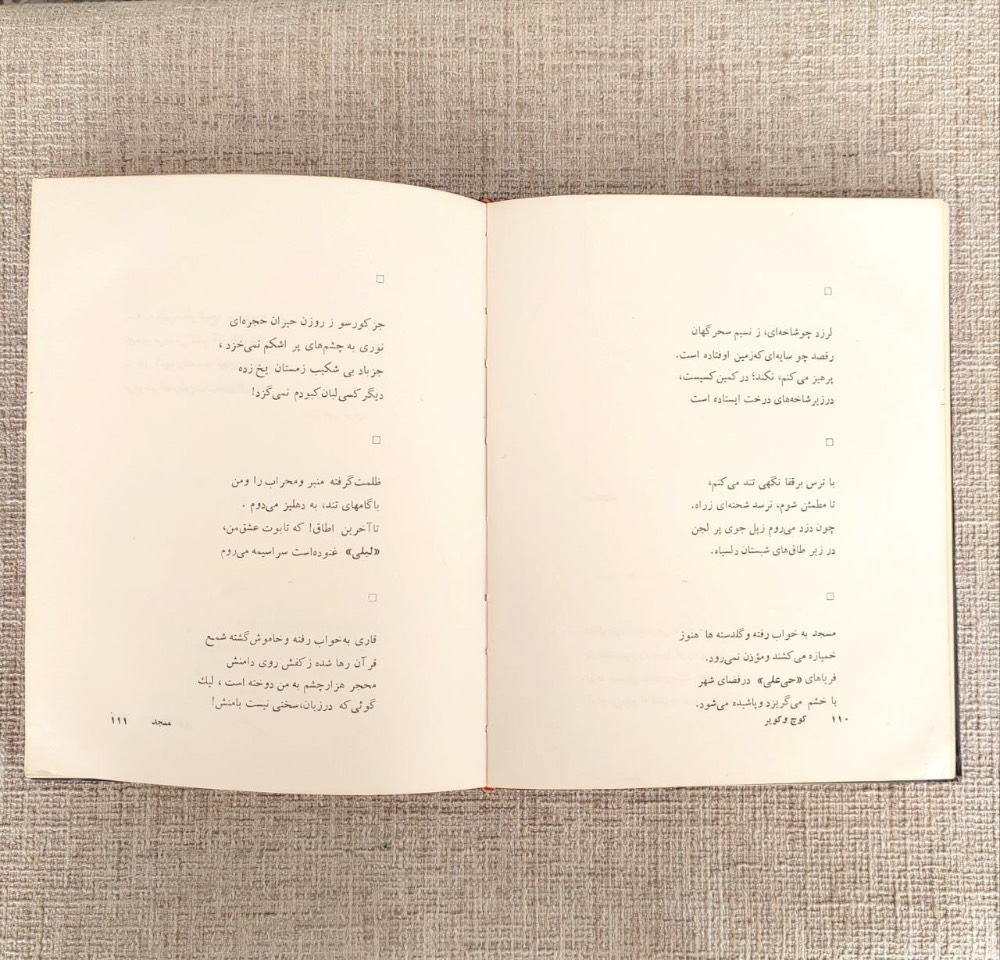 □
لرزد چوشاخه‌ای، ز نسیم سحرگهان
رقصد چو سایه‌ای‌که‌زمین اوفتاده است.
پرهیز می‌کنم، نکند؛ درکمین‌کسیست،
درزیرشاخه‌های درخت ایستاده است
□
با ترس برقفا نگهی تند می‌کنم،
تا مطمئن شوم، نرسد شحنه‌ای زراه.
چون دزد می‌روم زپل جوی پر لجن
در زیر طاق‌های شبستان دلسیاه.
□
مسجد به خواب رفته وگلدسته ها هنوز
خمیازه می‌کشند ومؤذن نمی‌رود.
فریاهای «حی‌علی» درفضای شهر
با خشم می‌گریزد وپاشیده می‌شود.
۱۱۰ کوچ وکویر
□
جز کورسو ز روزن حیران حجره‌ای
نوری به چشم‌های پر اشکم نمی‌خزد،
جزباد بی شکیب زمستان یخ زده
دیگر کسی‌لبان‌کبودم نمی‌گزد!
□
ظلمت‌گرفته منبر ومحراب را ومن
باگامهای تند، به دهلیز می‌دوم .
تاآخرین اطاق! که تابوت عشق‌من،
«لیلی» غنوده‌است سراسیمه می‌روم
□
قاری به‌خواب رفته وخاموش‌گشته شمع
قرآن رها شده زکفش روی دامنش
محجر هزارچشم به من دوخته است ، لیك
گوئی‌که درزبان،سخنی نیست بامنش!
مسجد ۱۱۱